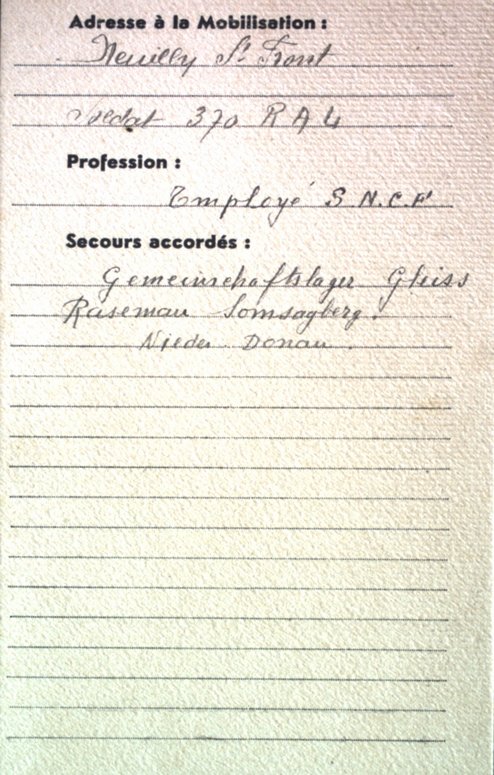 Adresse à la Mobilisation :
Neuilly St Front
Soldat 370 R A L
Profession :
Employé S.N.C.F
Secours accordés :
Gemeinschaftslager Gleiss
Raseman Somsagberg.
Nieder Donau.